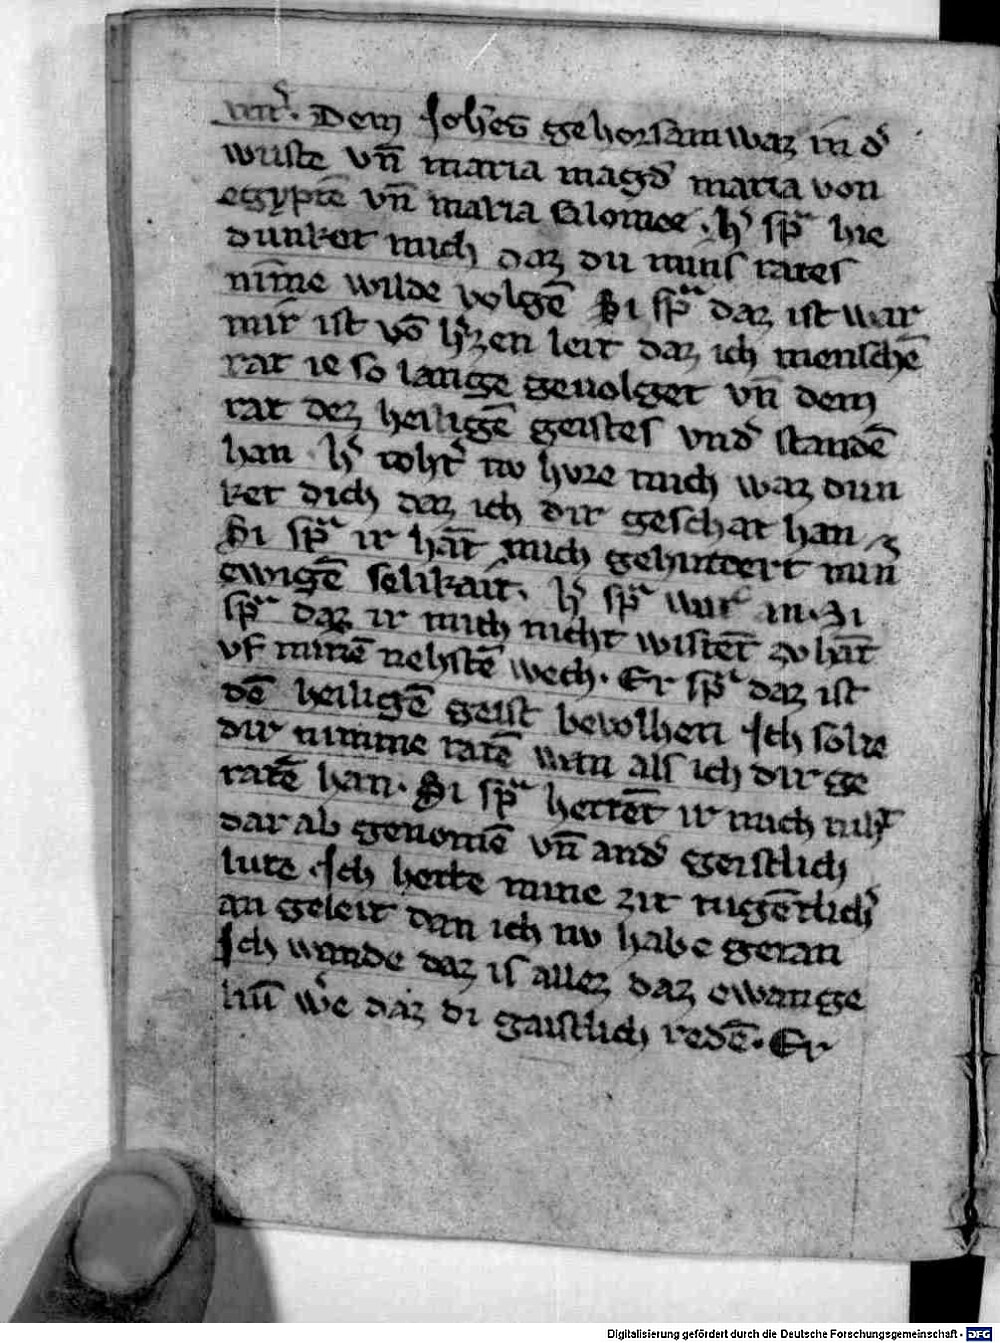 Dem Joh̄es gehorsam waz in d̕
wuste vn̄ maria magd̕ maria von
egyptē vn̄ maria Salomee · h̕ spͣ hie
dunket mich daz du mins rates
nim̄e wilde volgē Si spͣ daz ist war
mir ist vō h̕zen leit daz ich menschē
rat ie so lange geuolget vn̄ dem
rat dez heiligē geistes vnd̕ standē
han · h̕ toht̕ nv hore mich waz dun
ket dich daz ich dir geschat han
Si spͣ ir hāt mich gehindert min
ewigē selikait · h̕ spͣ war an · Si
spͣ daz ir mich nicht wistēt zv hāt
vf minē nehstē wech · Er spͣ daz ist
dē heiligē geist bevolhen Ich solte
dir nimme ratē wan als ich dir ge
ratē han · Si spͣ hettēt ir mich niht
dar ab genomē vn̄ and̕ geistlich
lute · Ich hette mine zit tugētlich̕
an geleit dan ich nv habe getan
Ich wande daz is allez daz ewange
liū w̕e daz di gaistlich redē · Er
Digitalisierung gefördert durch die Deutsche Forschungsgemeinschaft - DFG